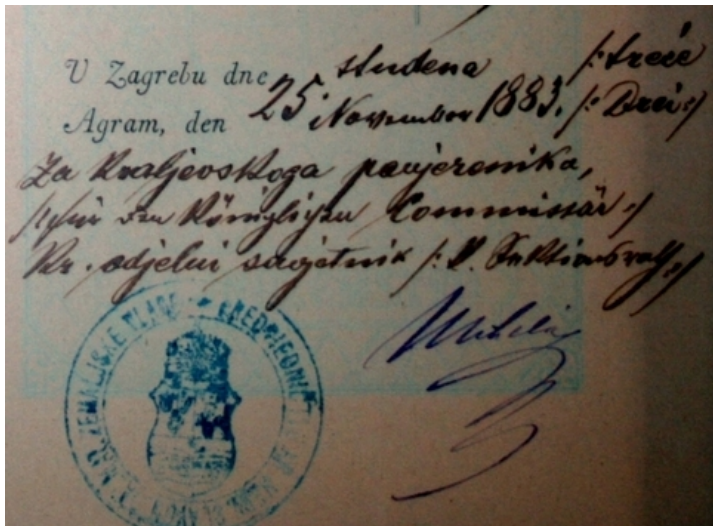 U Zagrebu dne studena /: treće
Agram, den 25 November 1883. /: Drei :/
Za kraljevskoga povjerenika,
/: für den Königlichen Commissär :/
Kr. odjelni savjetnik /: K. Sektionsrath :/
ZEMALJSKE VLADE